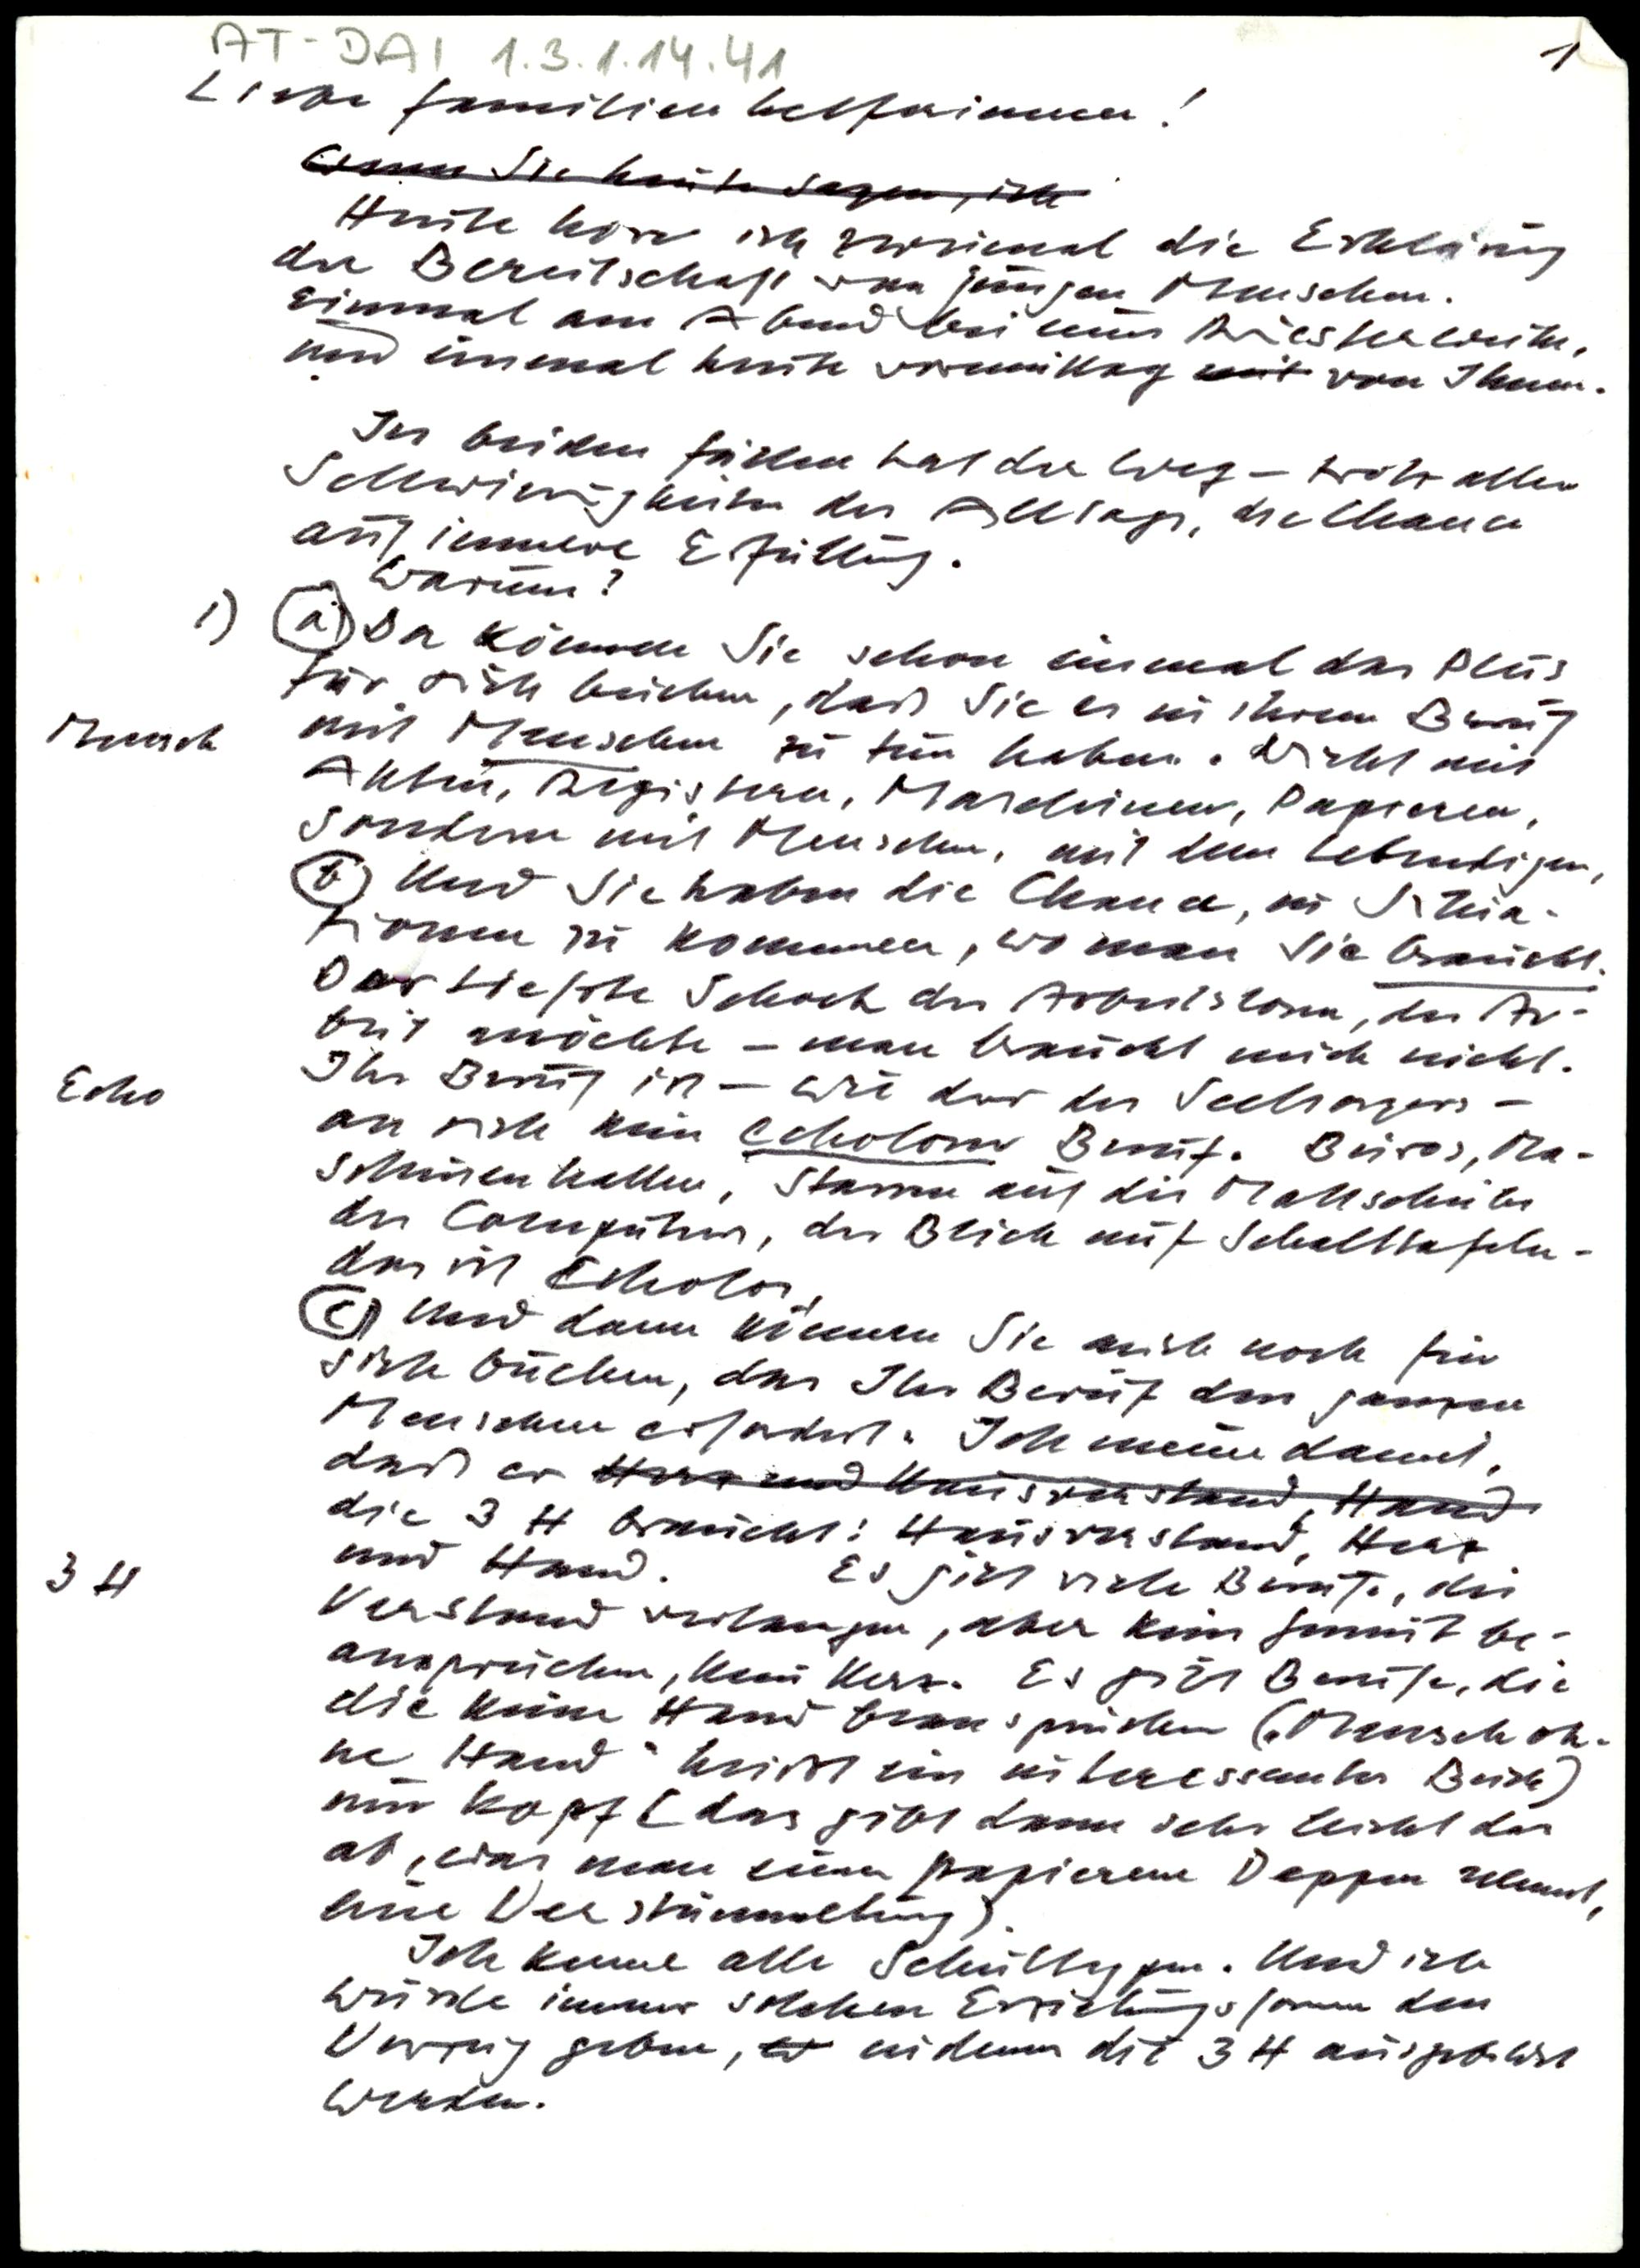 AT-DAI 1.3.1.14.41
1
Liebe Familienhelferinnen!
Wenn Sie heute sagen, ich
Heute höre ich zweimal die Erklärung
der Bereitschaft von jungen Menschen.
Einmal am Abend bei einer Priesterweihe,
und einmal heute vormittag mit von Ihnen.
In beiden Fällen hat der Weg – trotz aller
Schwierigkeiten des Alltags, die Chance
auf innere Erfüllung.
Warum?
1) a) Da können Sie schon einmal das Plus
für sich buchen, daß Sie es in ihrem Beruf
Mensch
mit Menschen zu tun haben. Nicht mit
Akten, Registern, Maschinen, Papieren,
sondern mit Menschen, mit dem Lebendigen,
b) Und Sie haben die Chance, in Situa-
tionen zu kommen, wo man Sie braucht.
Der tiefste Schock des Arbeitslosen, der Ar-
beit möchte – man braucht mich nicht.
Echo
Ihr Beruf ist – wie der des Seelsorgers –
an sich kein echoloser Beruf. Büros, Ma-
schinenhallen, Starren auf die Mattscheibe
des Computers, der Blick auf Schalttafeln –
das ist Echolos,
c) Und dann können Sie auch noch für
sich buchen, das Ihr Beruf den ganzen
Menschen erfordert. Ich meine damit,
daß er Herz und Hausverstand, Hand
die 3 H braucht: Hausverstand, Herz
3 H
und Hand. Es gibt viele Berufe, die
Verstand verlangen, aber kein Gemüt be-
anspruchen, kein Herz. Es gibt Berufe, die
die keine Hand beanspruchen („Mensch oh-
ne Hand" heißt ein interessantes Buch)
nur Kopf (das gibt dann sehr leicht das
ab, was man einen papierene Deppen nennt,
eine Verstümmelung).
Ich kenne alle Schultypen. Und ich
würde immer solchen Erziehungsformen den
Vorzug geben, in denen die 3 H ausgebildet
werden.